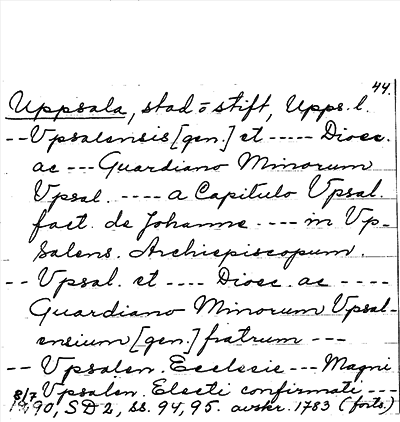 44.
Uppsala, stad o stift, Upps. l.
-- Vpsalensis [gen.] et ----- Dioec.
ac --- Guardiano Minorum
Vpsal. ---- a Capitulo Vpsal.
fact. de Johanne ---- in Vp-
salens. Archiepiscopum.
-- Vpsal. et ---- Dioec. ac ----
Guardiano Minorum Vpsal-
ensium [gen.] fratrum ---
-- Vpsalen. Ecclesie --- Magni
Vpsalen. Electi confirmati ---
8/7 1290, SD 2, ss. 94, 95. avskr. 1783 (forts.)